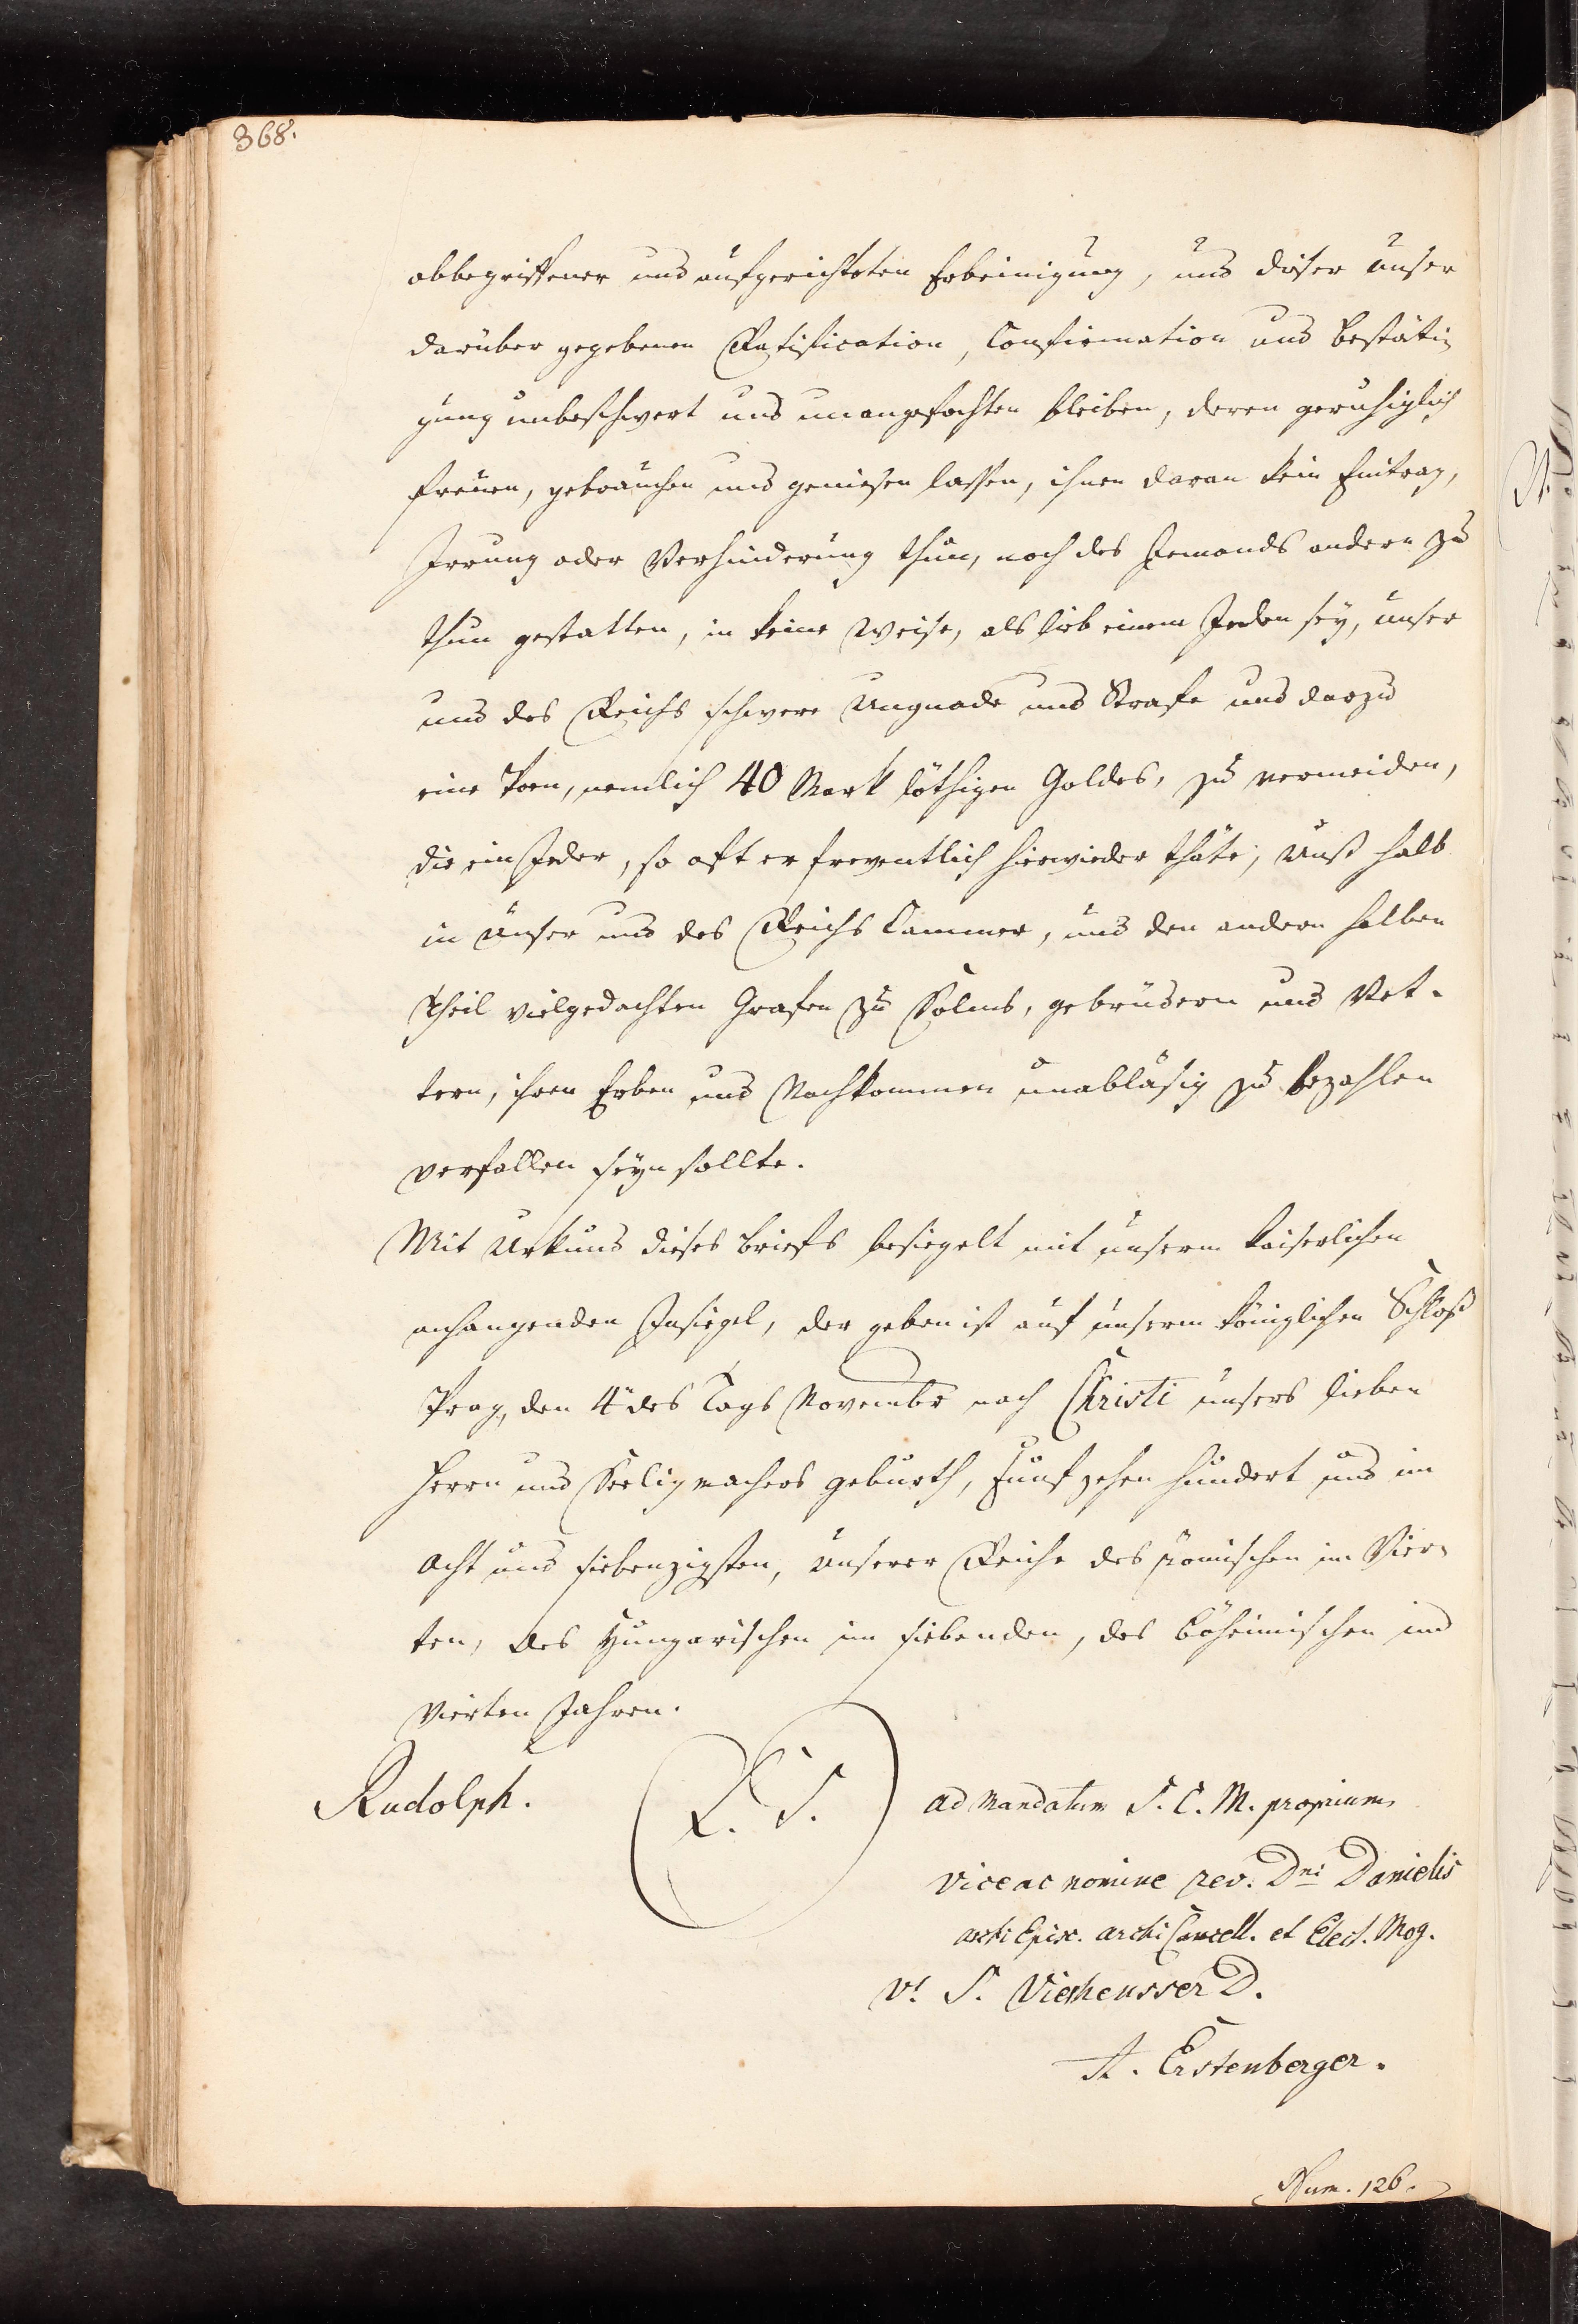 368.
obbegriffener und aufgerichteten Erbeinigung, und dieser unser
darüber gegebenen Ratification, Confirmation und Bestäti-
gung unbeschwert und unangefochten bleiben, deren geruhiglich
freuen, gebrauchen und geniesen lassen, ihnen daran kein Eintrag,
Irrung oder Verhinderung thun, noch des Jemands andern zu
thun gestatten, in keine Weise, als lieb einem Jeden sey, unser
und des Reichs schwere Ungnade und Strafe und darzu
eine Poen, nemlich 40 Mark löthigen Goldes, zu vermeiden,
die ein Jeder, so oft er freventlich hierwieder thäte, Unß halb
in unser und des Reichs Cammer, und den andern halben
Theil vielgedachten Grafen zu Solms, gebrüdern und Vet-
tern, ihren Erben und Nachkommen unabläsig zu bezahlen
verfallen seyn sollte.
Mit Urkund dieses briefs besiegelt mit unserm kaiserlichen
anhangenden Insiegel, der geben ist auf unserm königlichen Schloß
Prag, den 4 des Tags Novembr nach Christi unsers lieben
Herrn und Seeligmachers geburth, Funfzehen hundert und im
acht und siebenzigsten, unserer Reiche des römischen im Vier-
ten, des Hungarischen im siebenden, des böheimischen im
vierten Jahren.
Rudolph.
L. S.
ad Mandatum S. C. M. proprium
vice ac nomine rev. Dni Danielis
archi Episc. archi Cancell. et Elect. Mog.
Vt S. Vieheusser D.
A. Erstenberger.
Num. 126.